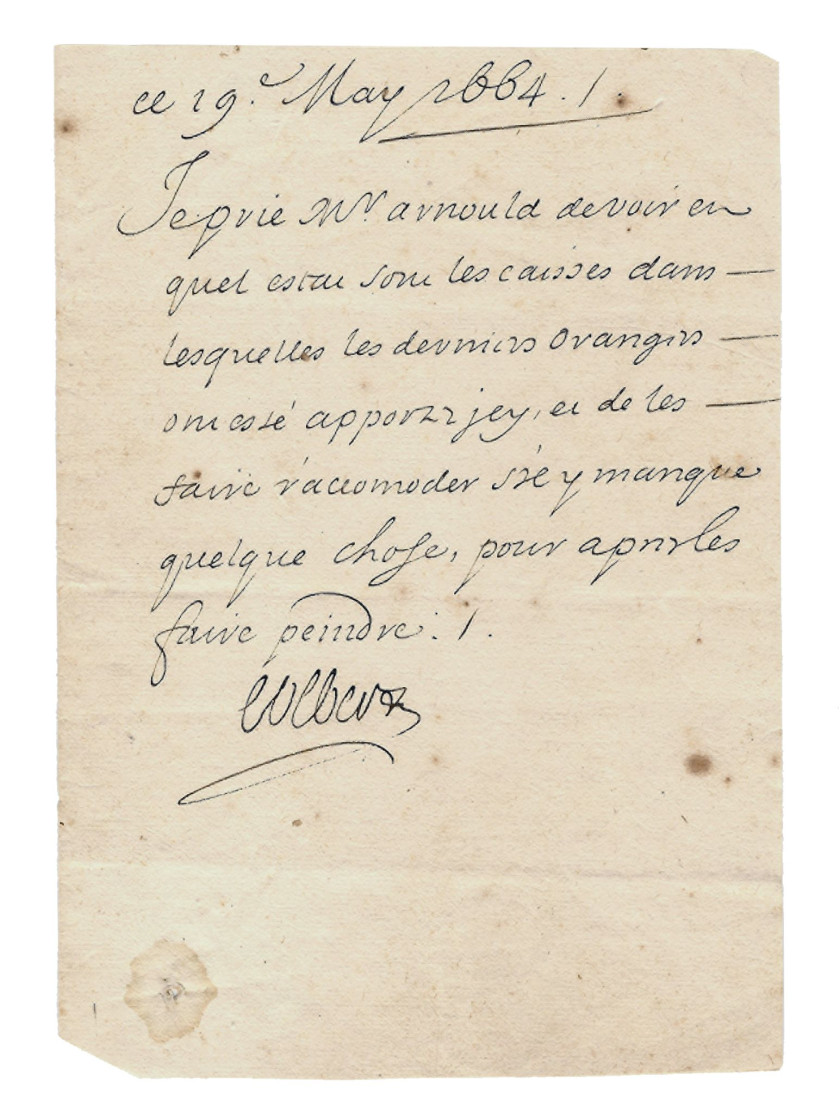 ce 19.e May 1664. /.
Je prie Mr. arnould de voir en
quel estat sont les caisses dans
lesquelles les derniers orangers
ont esté apportez jcy, et de les
faire r'accomoder s'il y manque
quelque chose, pour apres les
faire peindre. /.
Colbert